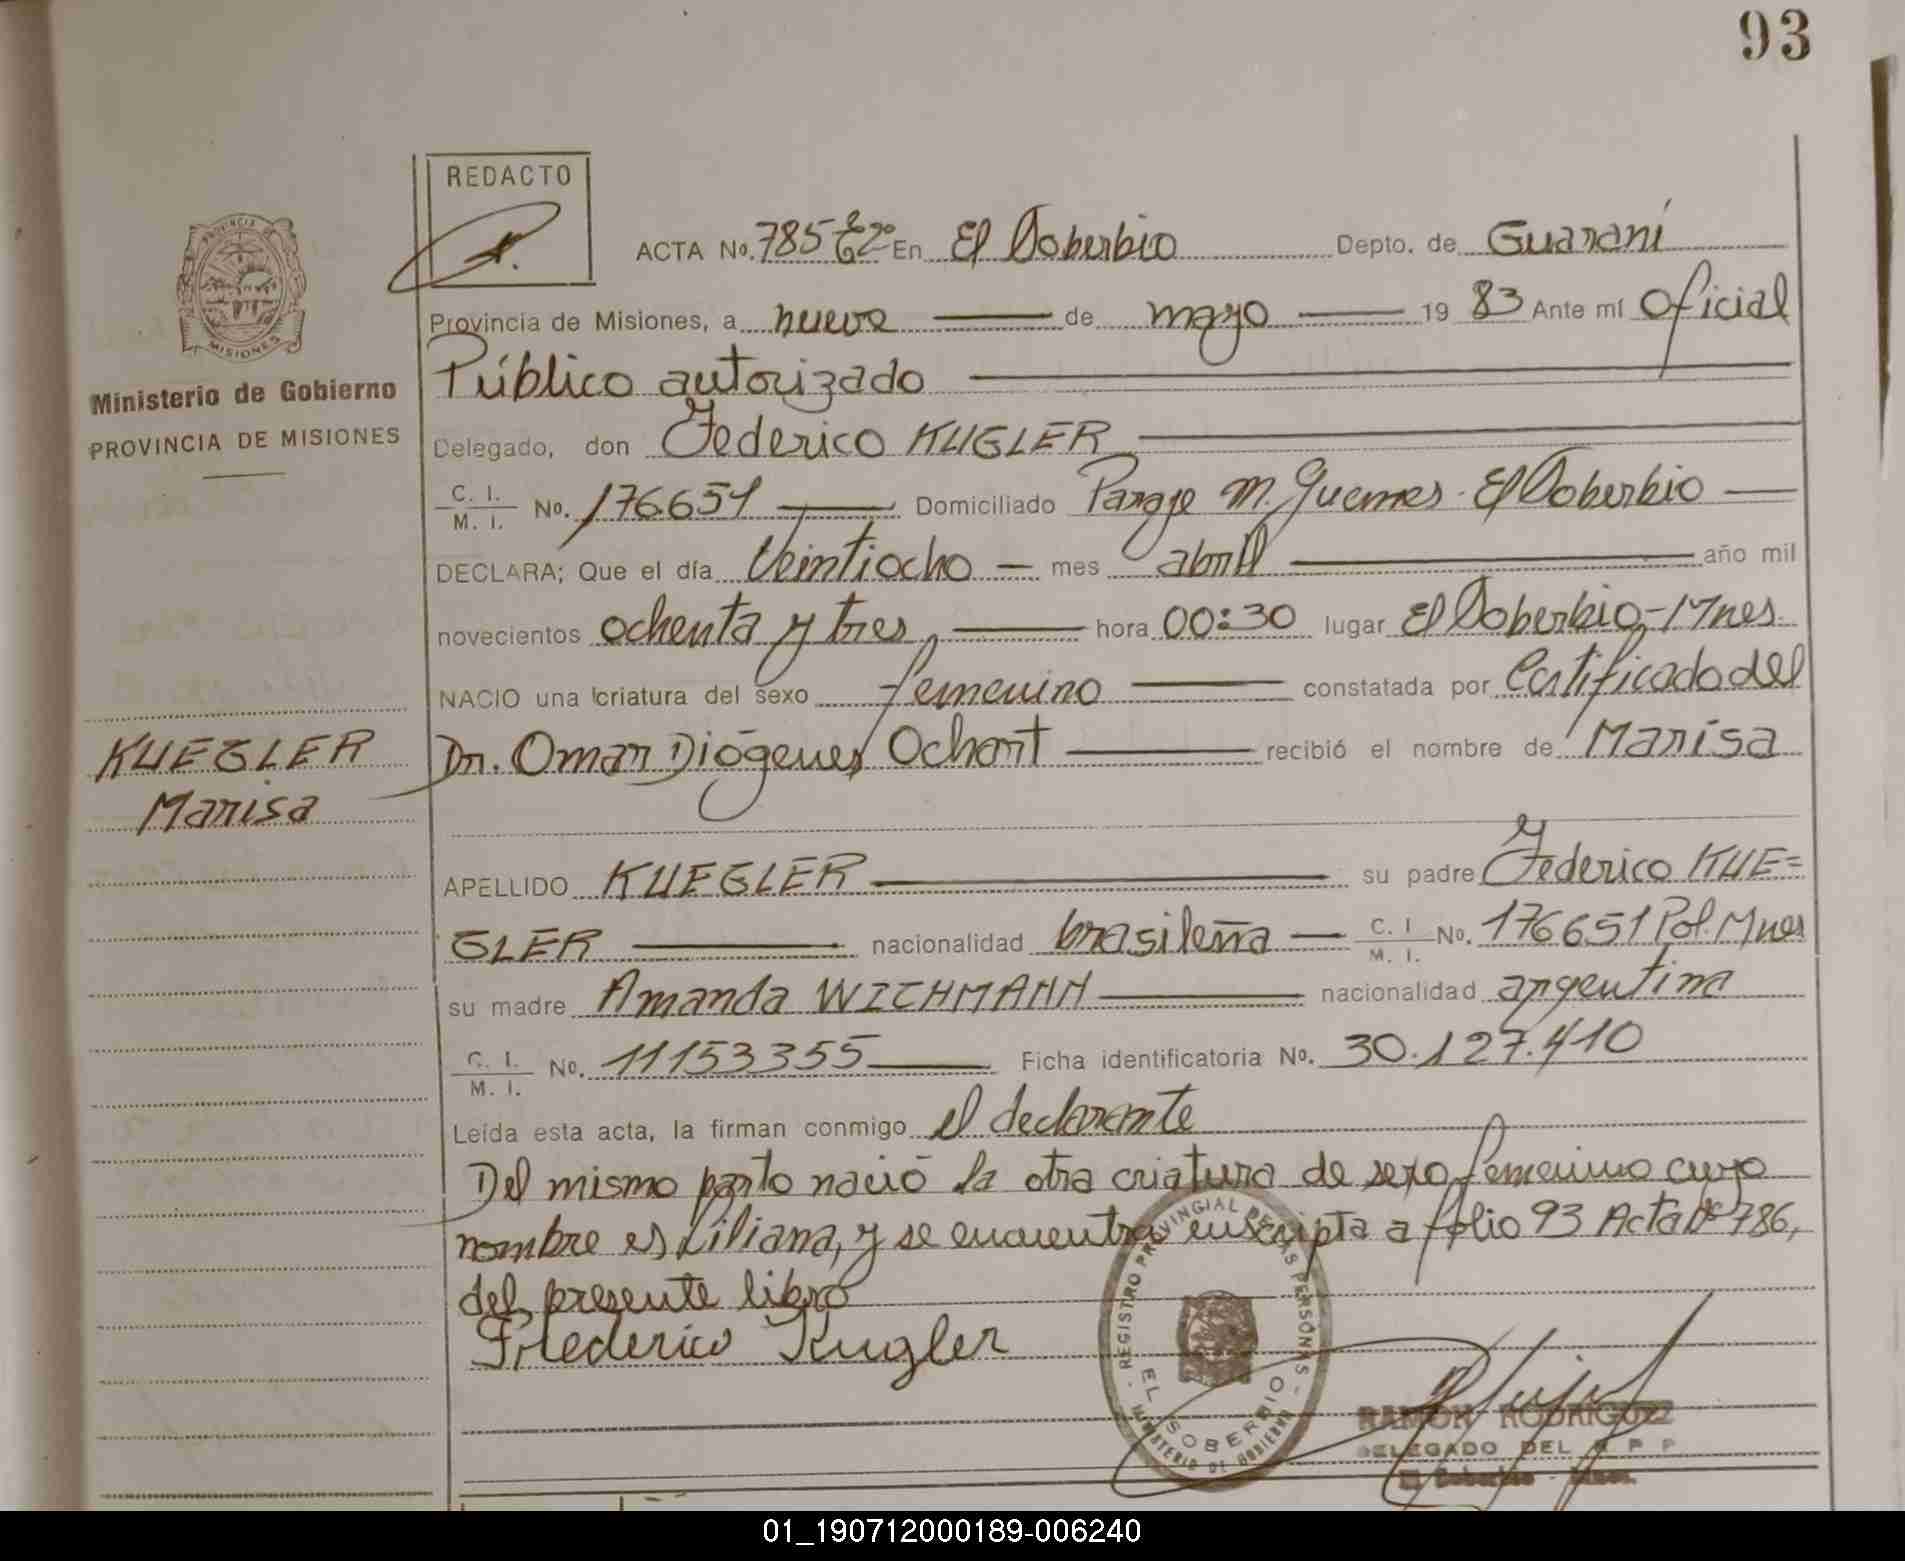 93
REDACTO
ACTA No. 785 En El Soberbio Depto. de Guaraní
Provincia de Misiones, a nueve de mayo 19 83 Ante mí Oficial
Público autorizado
Delegado, don Federico KUGLER
C. I.
M. I. No. 176.651 Domiciliado Paraje M. Guemes - El Soberbio
DECLARA; Que el día Veintiocho mes abril año mil
novecientos ochenta y tres, hora 00:30 lugar El Soberbio, Mnes.
NACIO una criatura del sexo femenino constatada por Certificado del
Dr. Omar Diógenes Ochont recibió el nombre de Marisa
APELLIDO KUEGLER su padre Federico KUE=
GLER nacionalidad brasileña C. I.
M. I. No. 176651 Pol. Mnes
su madre Amanda WICHMANN nacionalidad argentina
C. I.
M. I. No. 11153355 Ficha identificatoria No. 30.127.410
Leída esta acta, la firman conmigo el declarante
Del mismo parto nació la otra criatura de sexo femenino cuyo
nombre es Liliana, y se encuentra inscripta a folio 93 Acta Nº 786,
del presente libro
Frederico Kugler
PROVINCIA DE
MISIONES
Ministerio de Gobierno
PROVINCIA DE MISIONES
KUEGLER
Marisa
REGISTRO PROVINCIAL DE LAS PERSONAS
EL SOBERBIO
MINISTERIO DE GOBIERNO
RAMON RODRIGUEZ
DELEGADO DEL R P P
El Soberbio - Mnes.
01_190712000189-006240